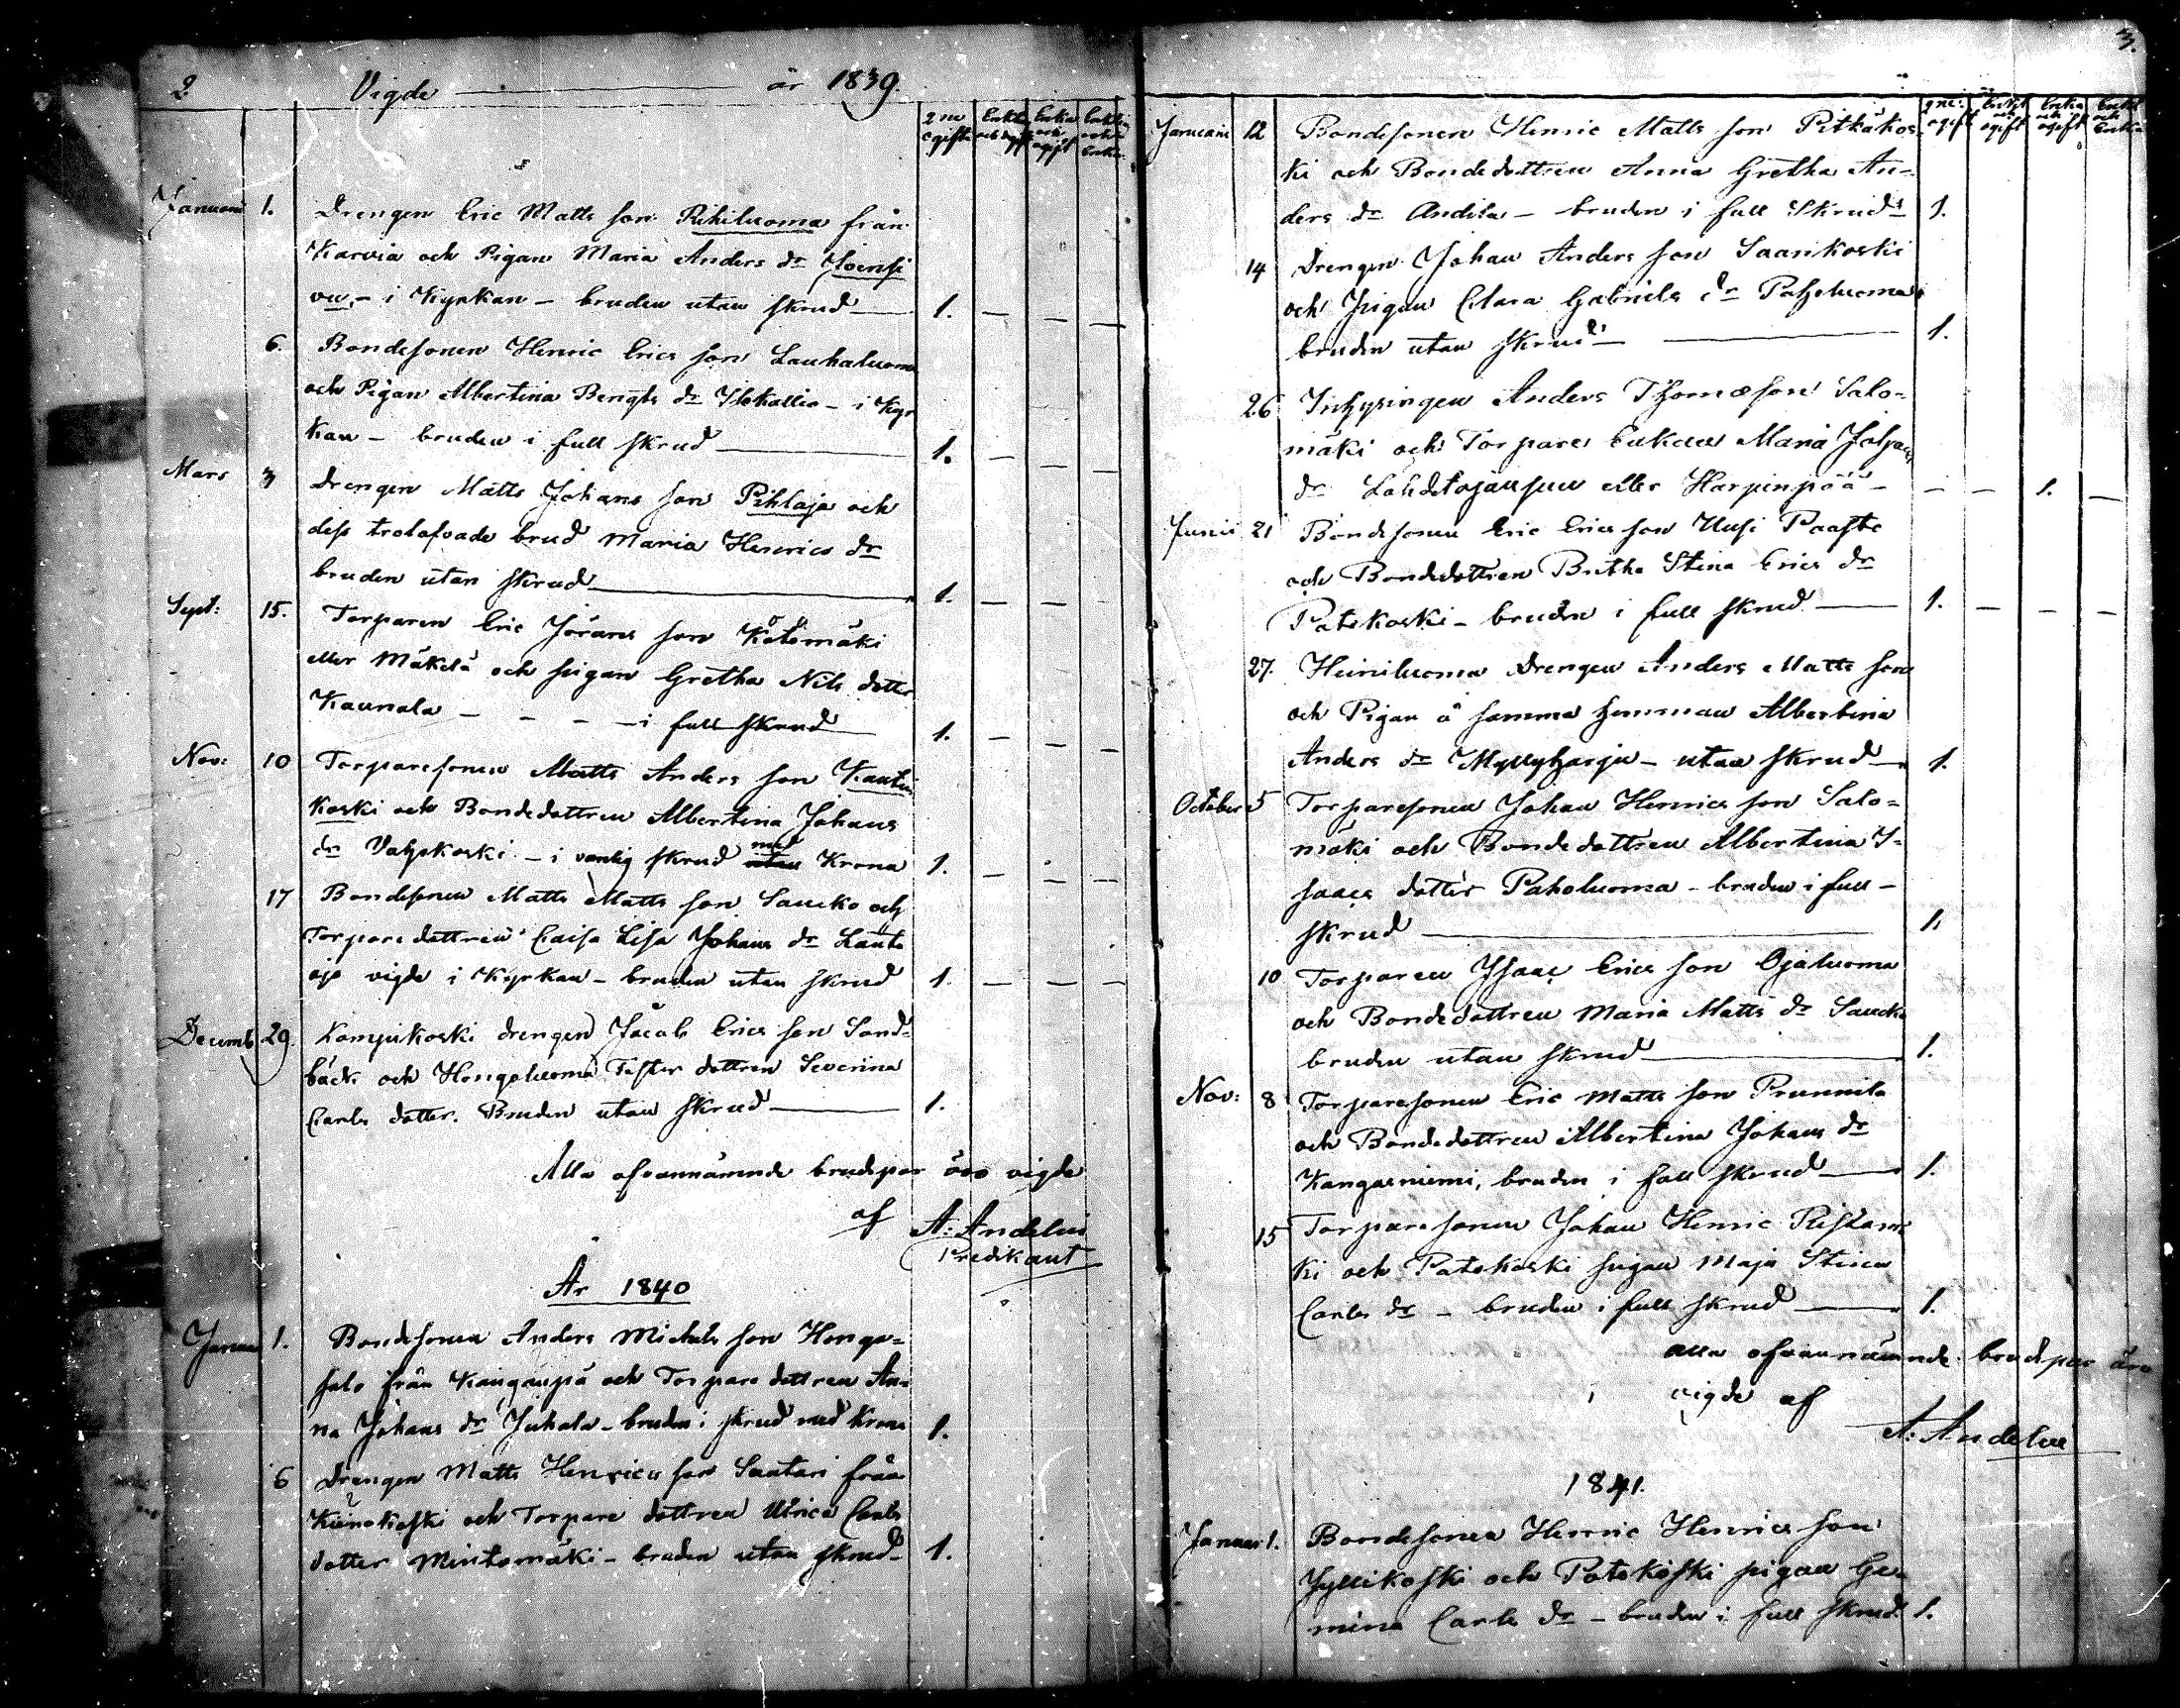 2. Vigde år 1839.
2ne ogifta
Enkling och ogift
Enka och ogift
Enkling och Enka
Januarii 1. Drengen Eric Matts son Pihiluoma från
Karvia och Pigan Maria Anders dr Joensu
vu - i Kyrkan - bruden utan skrud 1. — — —
6. Bondesonen Henric Erics son Lauhaluoma
och Pigan Albertina Bengts dr Ylikallio - i Kyr
kan - bruden i full skrud 1. — — —
Mars 3 Drengen Matts Johans son Pihlaja och
dess trolofvade brud Maria Henrics dr
bruden utan skrud 1. — —
Sept: 15. Torparen Eric Jörans son Kötömäki
eller Mäkelä och pigan Gretha Nils dotter
Kaunola - - - - i full skrud 1. — — —
Nov: 10 Torparesonen Matts Anders son Kauti
koski och Bondedottren Albertina Johans
dr Vatzkoski - i vanlig skrud med utan Krona 1. — — —
17 Bondesonen Matts Matts son Saucko och
Torparedottren Caisa Lisa Johans dr Lauto
oja vigde i Kyrkan - bruden utan skrud 1. — — —
Decemb. 29. Kampikoski drengen Jacob Erics son Sand-
bäck och Hongoluoma Foster dottren Severina
Carls dotter. Bruden utan skrud 1.
Alla ofvannämnde brudpar äro vigde
af A: Andelin
Predikant
År 1840
Januar 1. Bondesonen Anders Michels son Hongo-
salo från Kangaupä och Torpare dottren An-
na Johans dr Juhola - bruden i skrud med Krona 1.
6 Drengen Matts Henrics son Santari från
Kiinokoski och Torpare dottren Ulrica Carls
dotter Mintomäki - bruden utan skrud 1.
3.
2ne: ogift
Enkl och ogift
Enka och ogift
Enkl och Enka
Januarii 12 Bondesonen Henric Matts son Pitkäkos
ki och Bondedottren Anna Gretha An-
ders dr Andila - bruden i full skrud 1.
14 Drengen Johan Anders son Saankoski
och Pigan Clara Gabriels dr Paholuoma
bruden utan skrud 1.
26 Inhysingen Anders Thomæson Salo-
mäki och Torpare Enkan Maria Johans
dr Lähdetojansuu eller Harpinpää — — 1. —
Junii 21 Bondesonen Eric Ericsson Uusi Paaste
och Bondedottren Britha Stina Erics dr
Patokoski - bruden i full skrud 1. — — —
27. Heiniluoma Drengen Anders Matts son
och Pigan å samma hemman Albertina
Anders dr Myllyharju - utan skrud 1.
October 5 Torparesonen Johan Henrics son Salo-
mäki och Bondedottren Albertina I-
saacs dotter Paholuoma - bruden i full -
skrud 1.
10 Torparen Isaac Erics son Ojaluoma
och Bondedottren Maria Matts dr Saucko
bruden utan skrud 1.
Nov: 8 Torparesonen Eric Matts son Prunnila
och Bondedottren Albertina Johans dr
Kangasniemi, bruden i full skrud 1.
15 Torparesonen Johan Henric Ristam
ki och Patokoski pigan Maja Stina
Carls dr - bruden i full skrud 1.
alla ofvannämnde brudpar äro
vigde af
A: Andelin
1841.
Januar 1. Bondesonen Henric Henrics son
Jyllikoski och Patokoski pigan Ge-
mina Carls dr - bruden i full skrud 1.